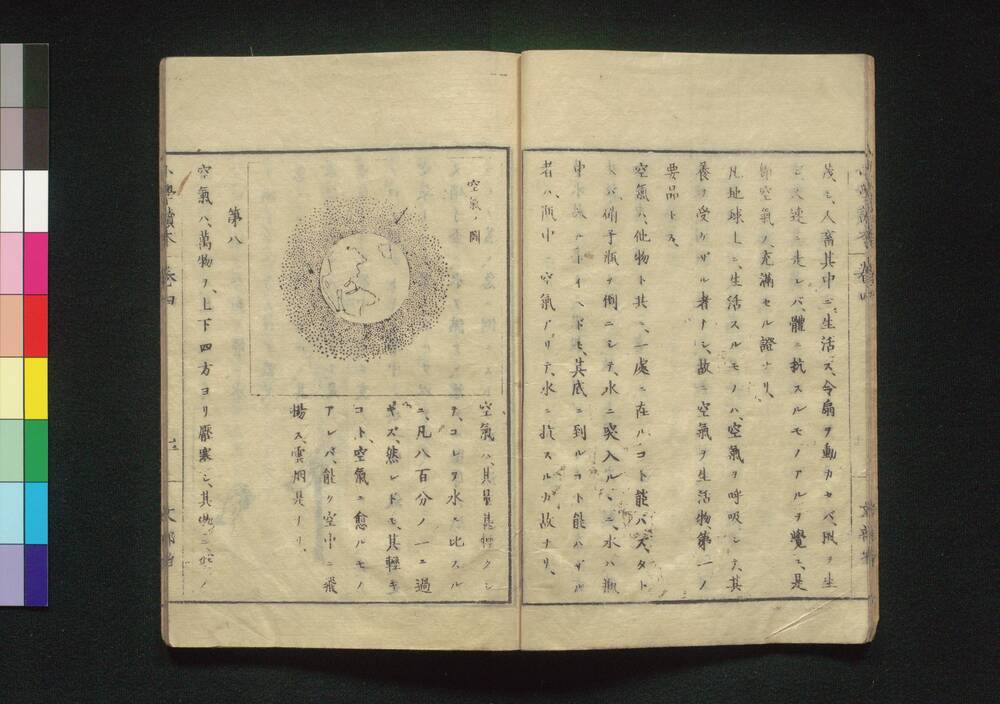 茂モ、人畜其中ニ生活ス、今扇ヲ動カセバ、風ヲ生
ジ、又速ニ走レバ、體ニ抗スルモノアルヲ覺ユ、是
即空氣ノ、充滿セル證ナリ、
凡地球上ニ、生活スルモノハ、空氣ヲ呼吸シテ、其
養ヲ受ケザル者ナシ、故ニ空氣ヲ生活物、第一ノ
要品トス、
空氣ハ、他物ト共ニ、一處ニ在ルコト能ハズ、タト
ヘバ、硝子瓶ヲ倒ニシテ、水ニ突入ルヽニ、水ハ瓶
中
ヘドモ、其底ニ到ルコト能ハザル
者ハ、瓶中ニ空氣アリテ、水ニ抗スルガ故ナリ、
空氣ノ圖
空氣ハ、其量甚輕クシ
テ、コレヲ水ニ比スル
ニ、凡八百分ノ一ニ過
ギズ、然レドモ、其輕キ
コト、空氣ニ愈ルモノ
アレバ、能ク空中ニ飛
揚ス、雲烟是ナリ、
第八
空氣ハ、萬物ヲ、上下四方ヨリ壓塞シ、其物ニ
小學讀本
卷四